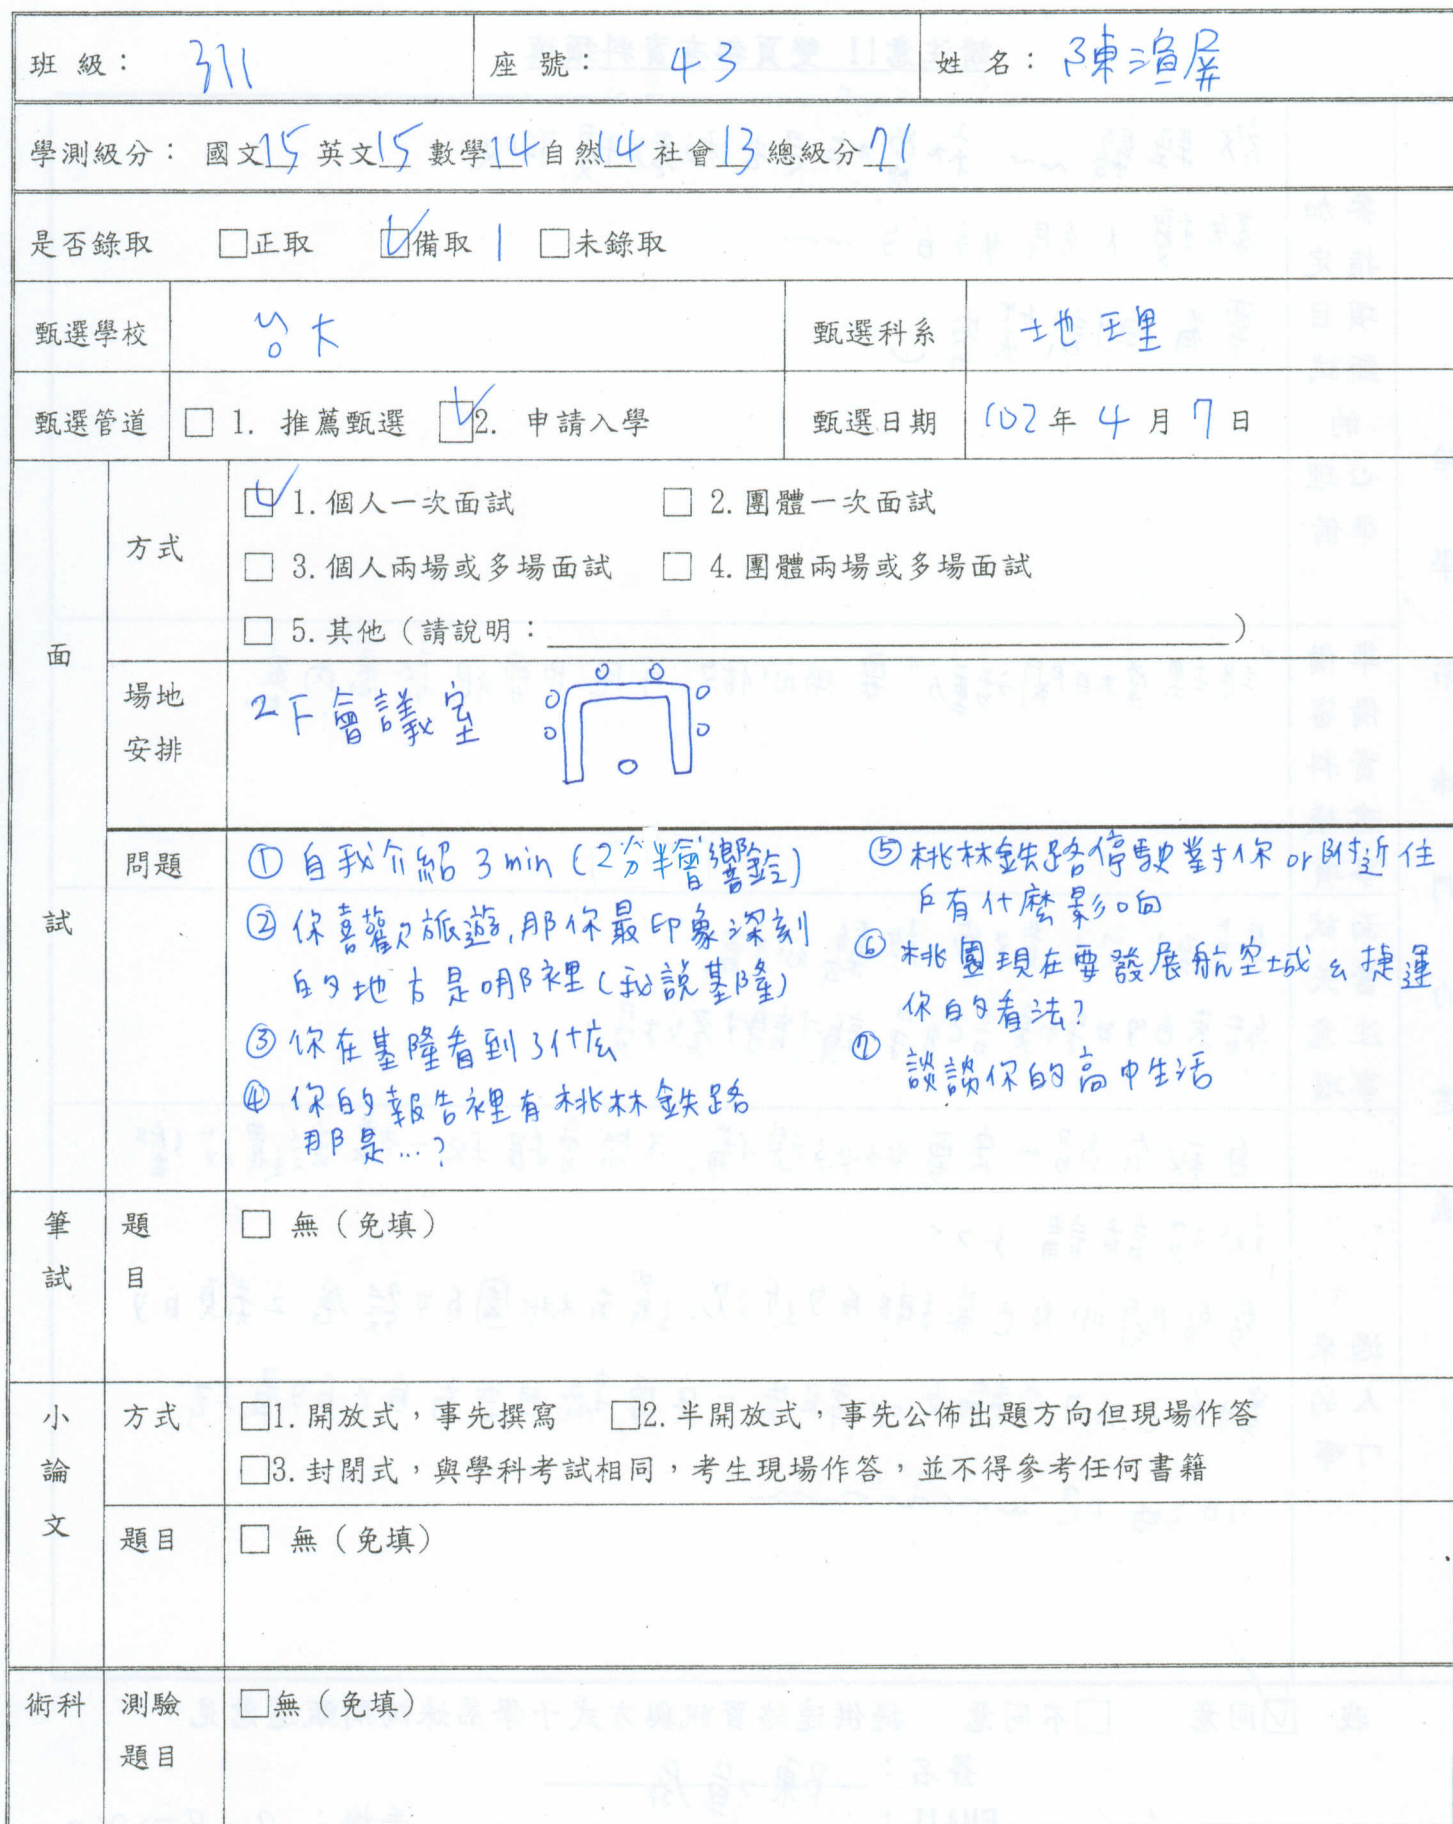 班 級： 311 座 號： 43 姓 名： 陳渲屏
學測級分： 國文15 英文15 數學14 自然14 社會13 總級分71
是否錄取 □正取 ☑備取 1 □未錄取
甄選學校 台大 甄選科系 地理
甄選管道 □ 1. 推薦甄選 ☑2. 申請入學 甄選日期 102年 4 月 7 日
面試
方式
☑ 1.個人一次面試 □ 2.團體一次面試
□ 3.個人兩場或多場面試 □ 4.團體兩場或多場面試
□ 5.其他（請說明：＿＿＿）
場地安排
2F會議室
問題
① 自我介紹 3 min (2分半會響鈴)
② 你喜歡旅遊,那你最印象深刻
的地方是哪裡 (我說基隆)
③ 你在基隆看到了什庅
④ 你的報告裡有桃林鉄路
那是…?
⑤ 桃林鉄路停駛對你 or 附近住
戶有什麼影响
⑥ 桃園現在要發展航空城 & 捷運
你的看法?
⑦ 談談你的高中生活
筆試
題目
□ 無（免填）
小論文
方式
□1.開放式，事先撰寫 □2.半開放式，事先公佈出題方向但現場作答
□3.封閉式，與學科考試相同，考生現場作答，並不得參考任何書籍
題目
□ 無（免填）
術科
測驗題目
□無（免填）